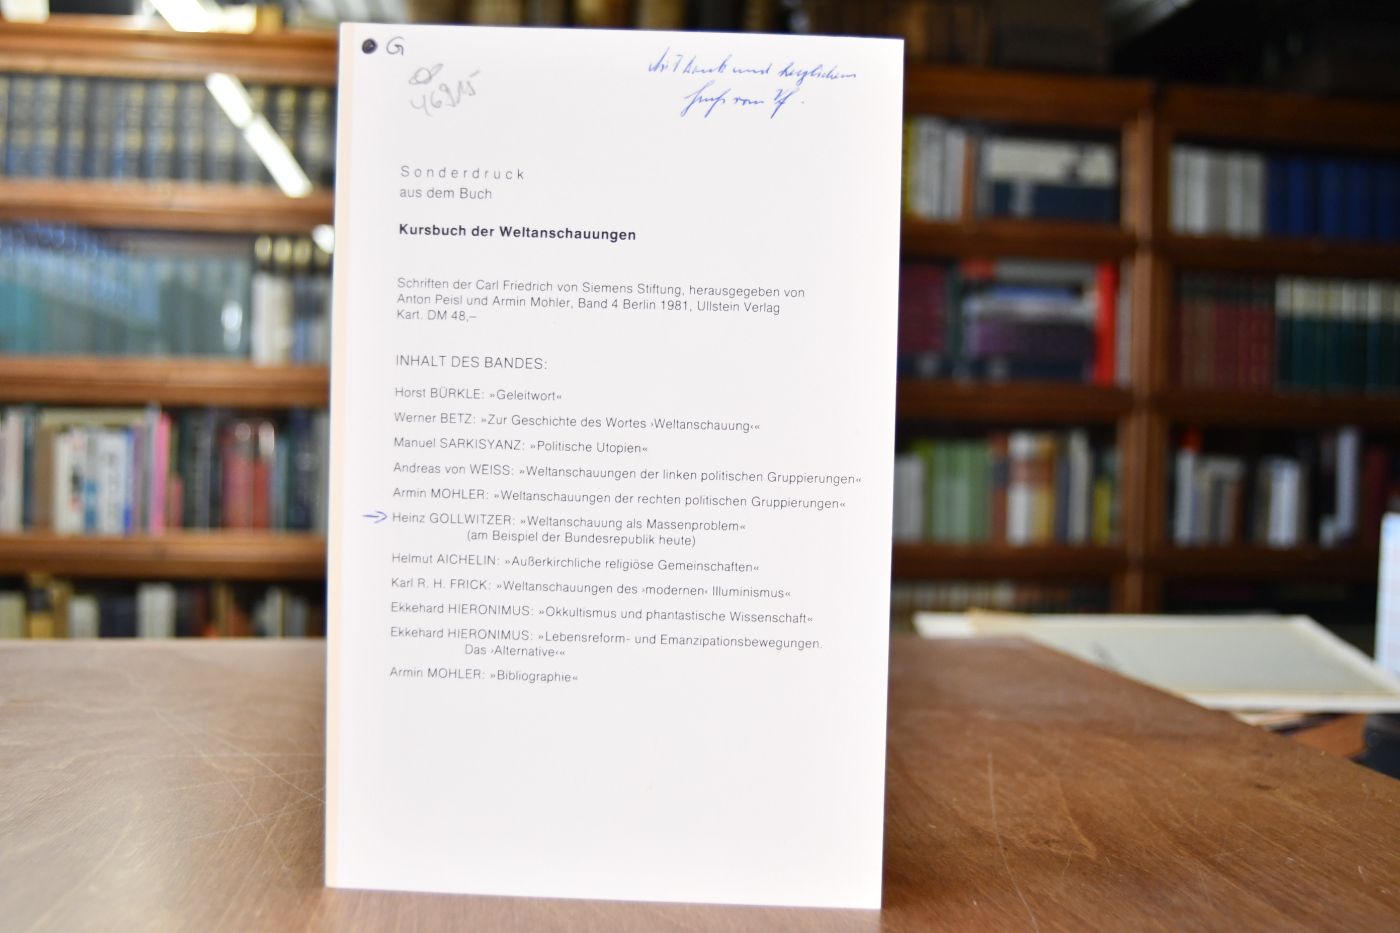 G
46915
Mit Dank und herzlichem
Gruß vom Vf.
Sonderdruck
aus dem Buch
Kursbuch der Weltanschauungen
Schriften der Carl Friedrich von Siemens Stiftung, herausgegeben von
Anton Peisl und Armin Mohler, Band 4 Berlin 1981, Ullstein Verlag
Kart. DM 48,–
INHALT DES BANDES:
Horst BÜRKLE: »Geleitwort«
Werner BETZ: »Zur Geschichte des Wortes ›Weltanschauung‹«
Manuel SARKISYANZ: »Politische Utopien«
Andreas von WEISS: »Weltanschauungen der linken politischen Gruppierungen«
Armin MOHLER: »Weltanschauungen der rechten politischen Gruppierungen«
Heinz GOLLWITZER: »Weltanschauung als Massenproblem«
(am Beispiel der Bundesrepublik heute)
Helmut AICHELIN: »Außerkirchliche religiöse Gemeinschaften«
Karl R. H. FRICK: »Weltanschauungen des ›modernen‹ Illuminismus«
Ekkehard HIERONIMUS: »Okkultismus und phantastische Wissenschaft«
Ekkehard HIERONIMUS: »Lebensreform- und Emanzipationsbewegungen.
Das ›Alternative‹«
Armin MOHLER: »Bibliographie«